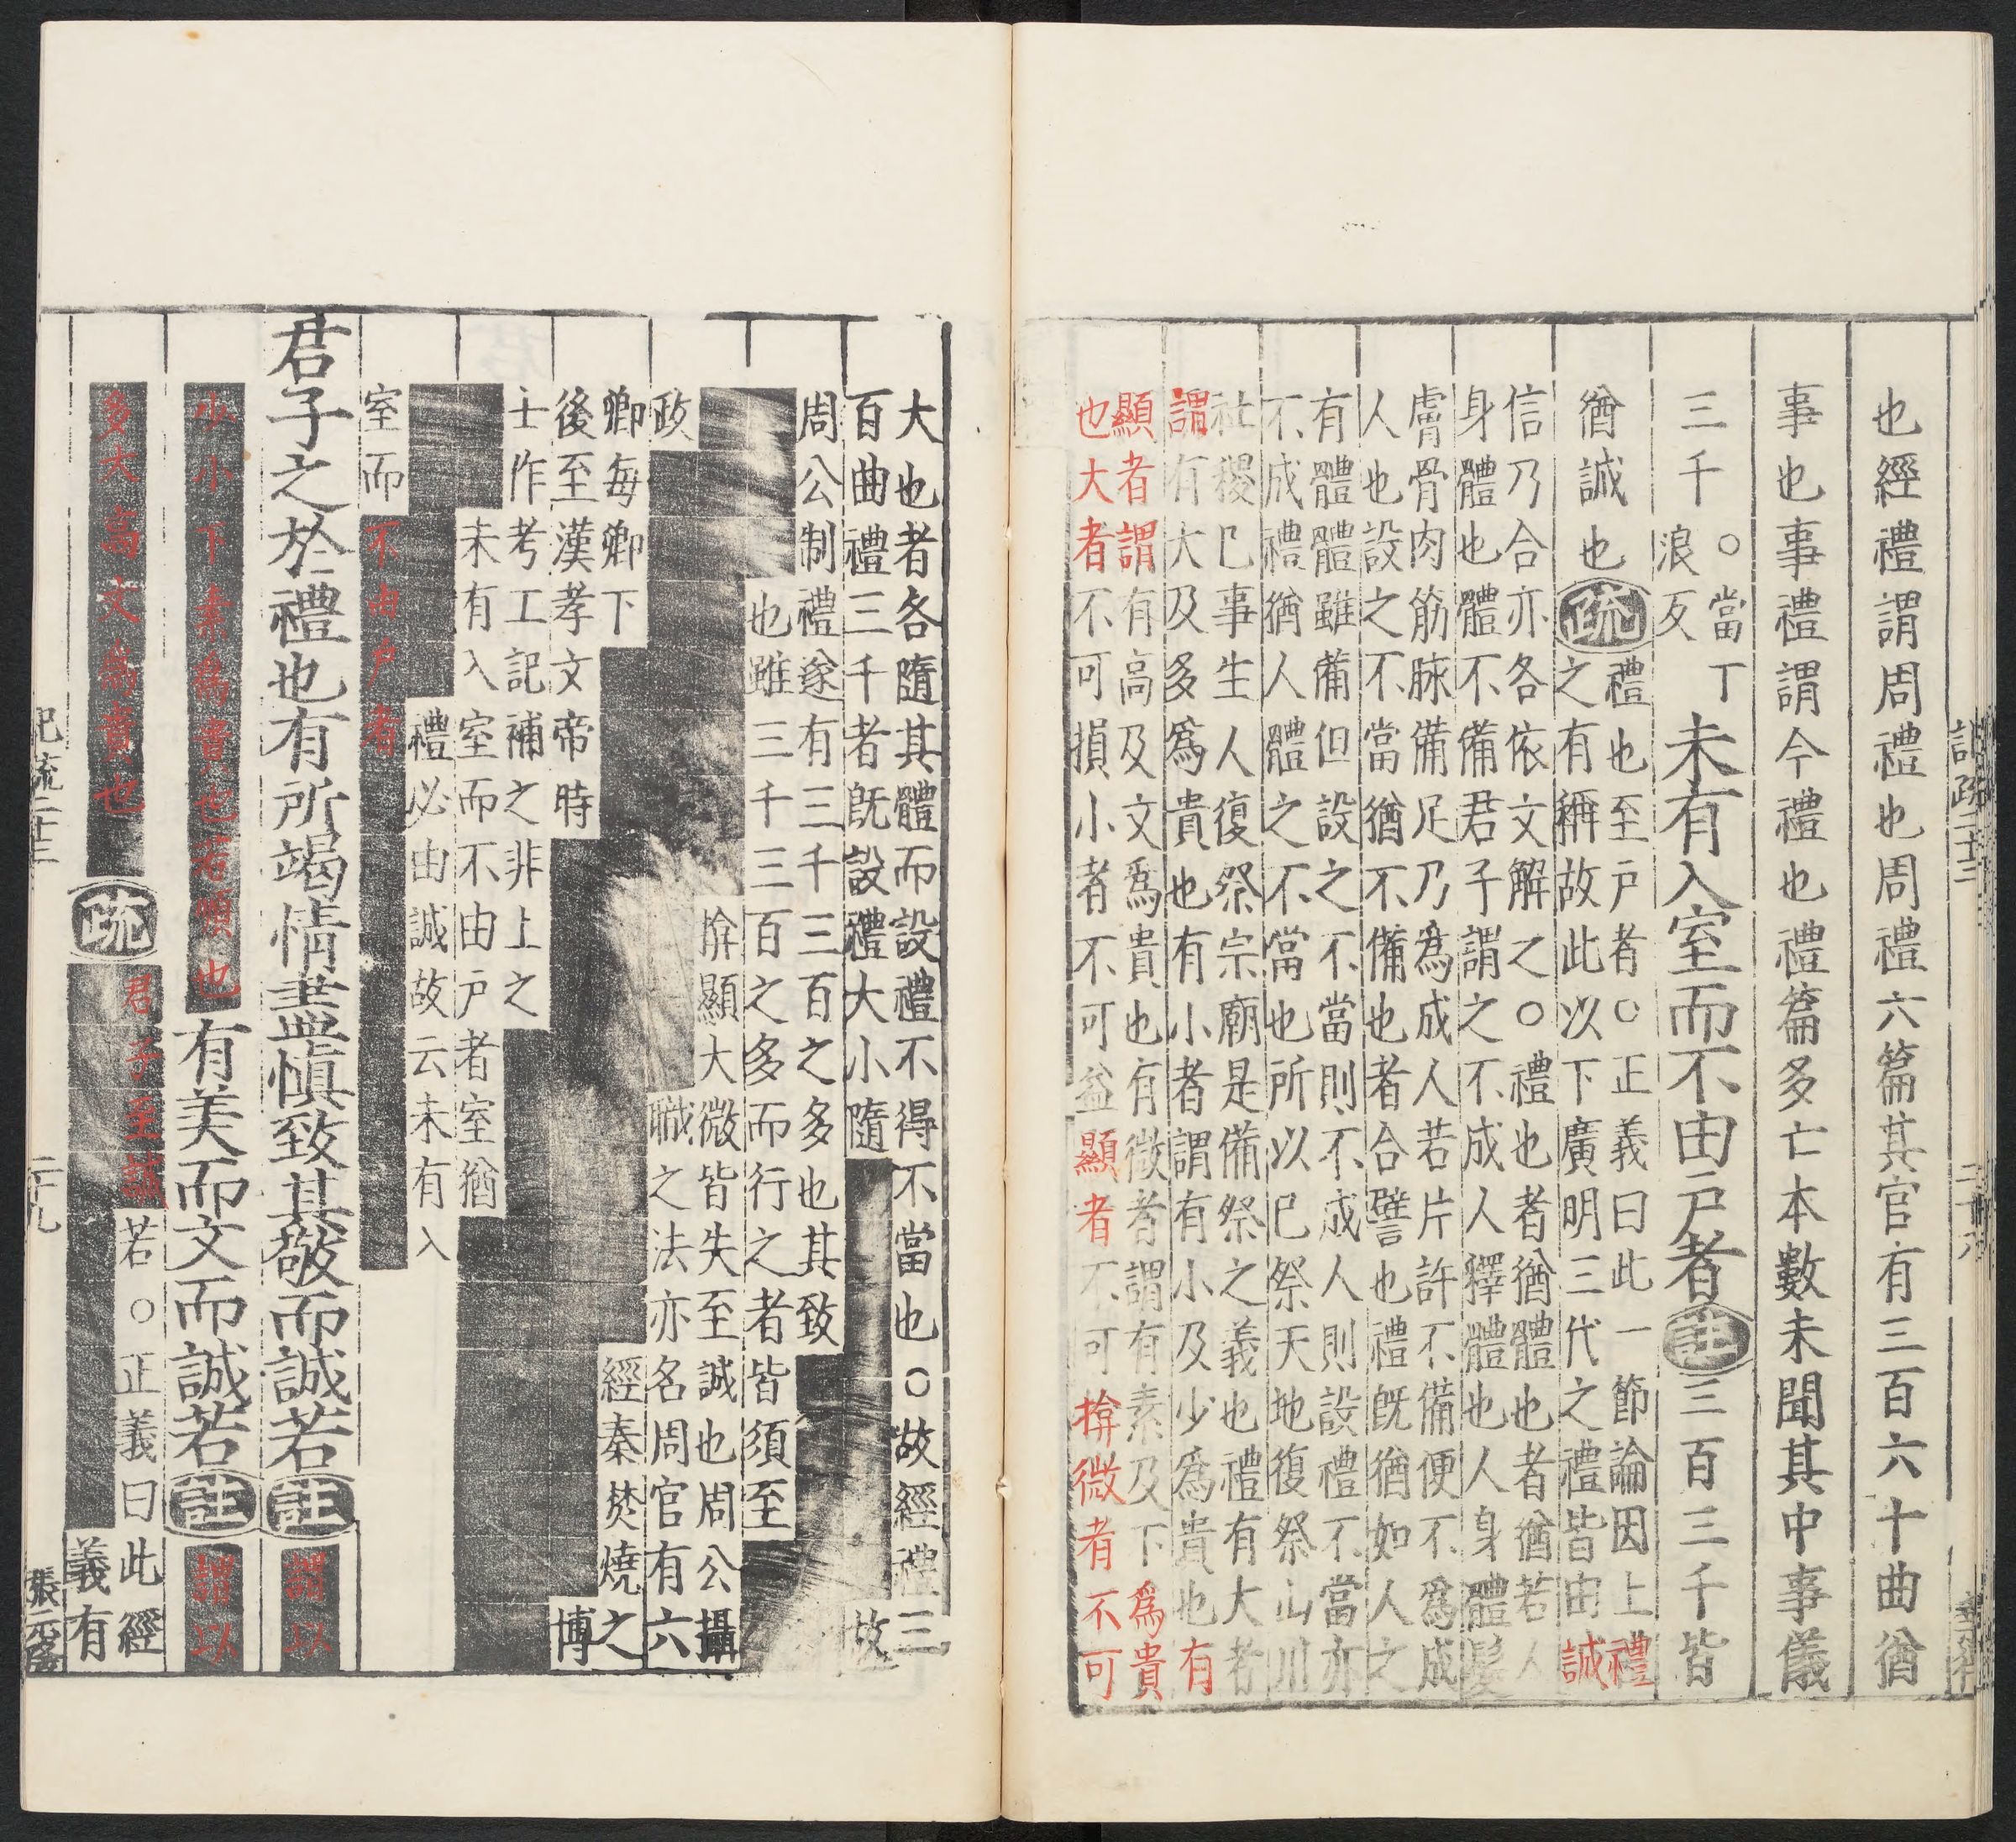 記疏二十三
二十八
也經禮謂周禮也周禮六篇其官有三百六十曲猶
事也事禮謂今禮也禮篇多亡本數未聞其中事儀
三千
○當丁
浪反
未有入室而不由戸者註三百三千皆
猶誠也疏
禮也至戸者○正義曰此一節論因上禮
之有稱故此以下廣明三代之禮皆由誠
信乃合亦各依文解之○禮也者猶體也者猶若人
身體也體不備君子謂之不成人釋體也人身體髮
膚骨肉筋脉備足乃爲成人若片許不備便不爲成
人也設之不當猶不備也者合譬也禮旣猶如人之
有體體雖備但設之不當則不成人則設禮不當亦
不成禮猶人體之不當也所以已祭天地復祭山川
社稷已事生人復祭宗廟是備祭之義也禮有大者
謂有大及多爲貴也有小者謂有小及少爲貴也有
顯者謂有高及文爲貴也有微者謂有素及下爲貴
也大者不可損小者不可益顯者不可揜微者不可
大也者各隨其體而設禮不得不當也○故經禮三
百曲禮三千者旣設禮大小隨 故
周公制禮遂有三千三百之多也其致
也雖三千三百之多而行之者皆須至
揜顯大微皆失至誠也周公攝
政 職之法亦名周官有六
卿每卿下 經秦焚燒之
後至漢孝文帝時 博
士作考工記補之非上之
未有入室而不由戸者室猶
禮必由誠故云未有入
室而不由戸者
君子之於禮也有所竭情盡慎致其敬而誠若註謂以
少小下素爲貴也若順也有美而文而誠若註謂以
多大高文爲貴也疏
君子至誠若○正義曰此經
義有
記疏二十三
二十九